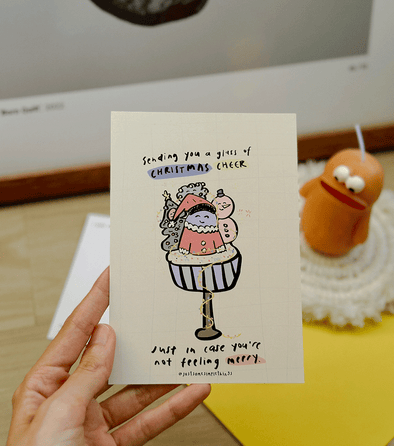 sending you a glass of
CHRISTMAS CHEER
Just in case you're
not feeling merry.